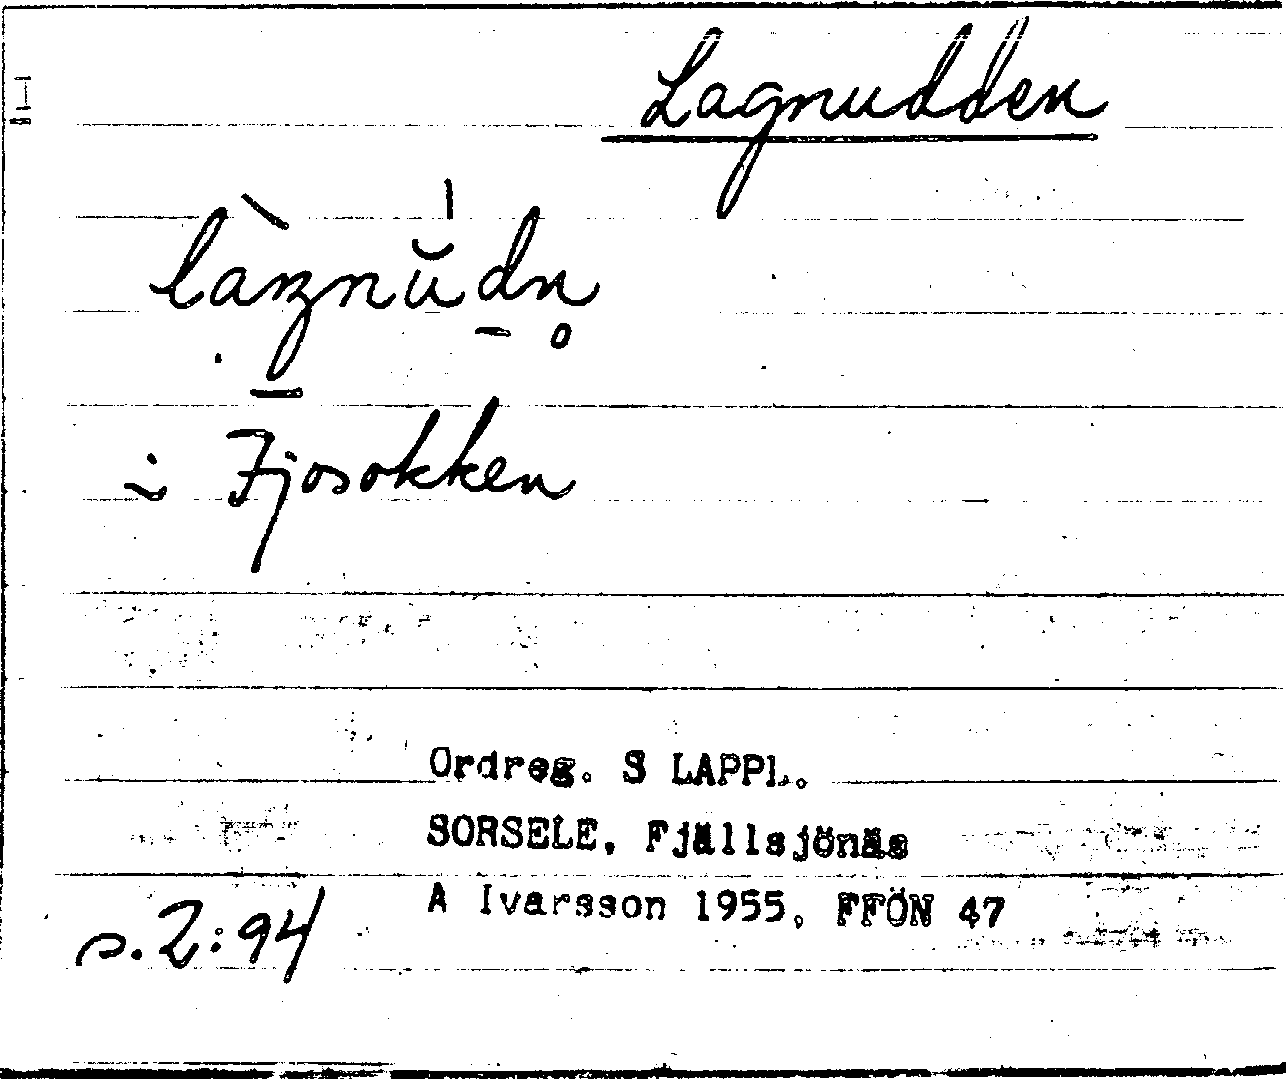 Lagnudden
làŋnŭdn̥
i Fjosokken
Ordreg. S LAPPL.
SORSELE, Fjällsjönäs
A Ivarsson 1955, FFÖN 47
s. 2:94